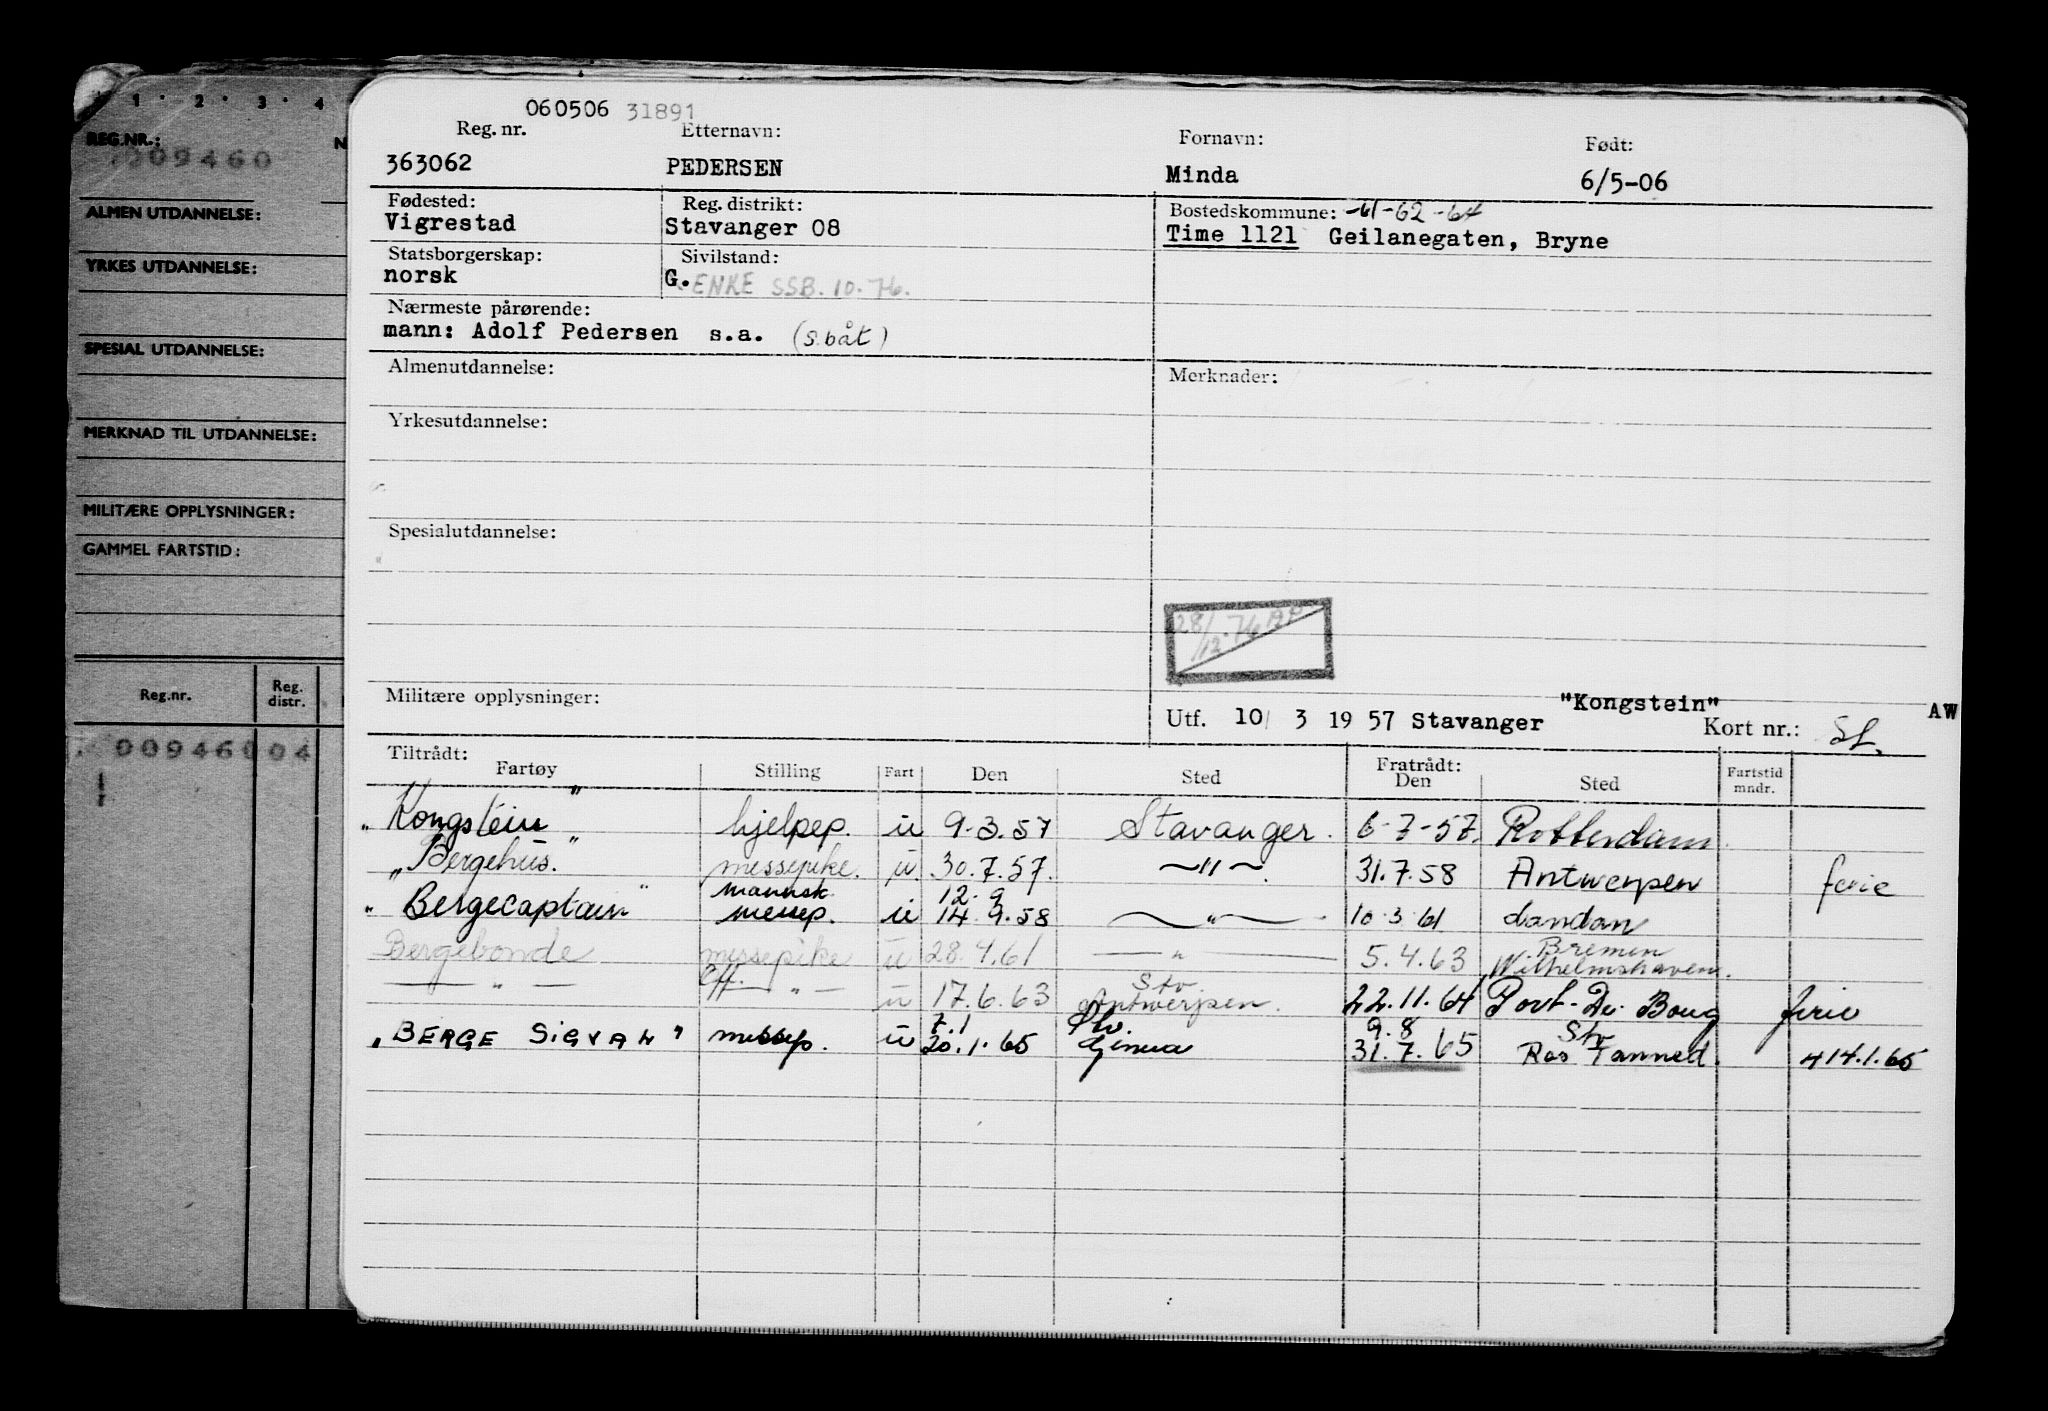 1 · 2 · 3 · 4
REG.NR.: N
009460
ALMEN UTDANNELSE:
YRKES UTDANNELSE:
SPESIAL UTDANNELSE:
MERKNAD TIL UTDANNELSE:
MILITÆRE OPPLYSNINGER:
GAMMEL FARTSTID:
Reg.nr. Reg. distr.
00946004
060506 31891
Reg. nr. Etternavn: Fornavn: Født:
363062 PEDERSEN Minda 6/5-06
Fødested: Reg. distrikt: Bostedskommune: -61-62-64
Vigrestad Stavanger 08 Time 1121 Geilanegaten, Bryne
Statsborgerskap: Sivilstand:
norsk G. ENKE SSB. 10.76.
Nærmeste pårørende:
mann: Adolf Pedersen s.a. (s.båt)
Almenutdannelse: Merknader:
Yrkesutdannelse:
Spesialutdannelse:
28/12-76
Militære opplysninger:
"Kongstein" AW
Utf. 10/ 3 19 57 Stavanger Kort nr.:
Tiltrådt: Fratrådt:
Fartøy Stilling Fart Den Sted Den Sted Fartstid mndr.
"Kongstein" hjelpep. u 9.3.57 Stavanger. 6-7-57. Rotterdam.
"Bergehus." messepike. u. 30.7.57. —"—. 31.7.58 Antwerpen ferie
mannsk 12.9
"Bergecaptain" messep. u 14.9.58 —"—. 10.3.61 London
Bremen
Bergebonde messepike u 28.4.61 —"— 5.4.63 Wilhelmshaven.
Off. Stv.
—"— —"— u 17.6.63 Antwerpen. 22.11.64 Port-De-Bouq ferie
7.1 Stv. 9.8 Stv
"BERGE SIGVAL" messep. u 20.1.65 Genua 31.7.65 Ras Tanned. 414.1.65